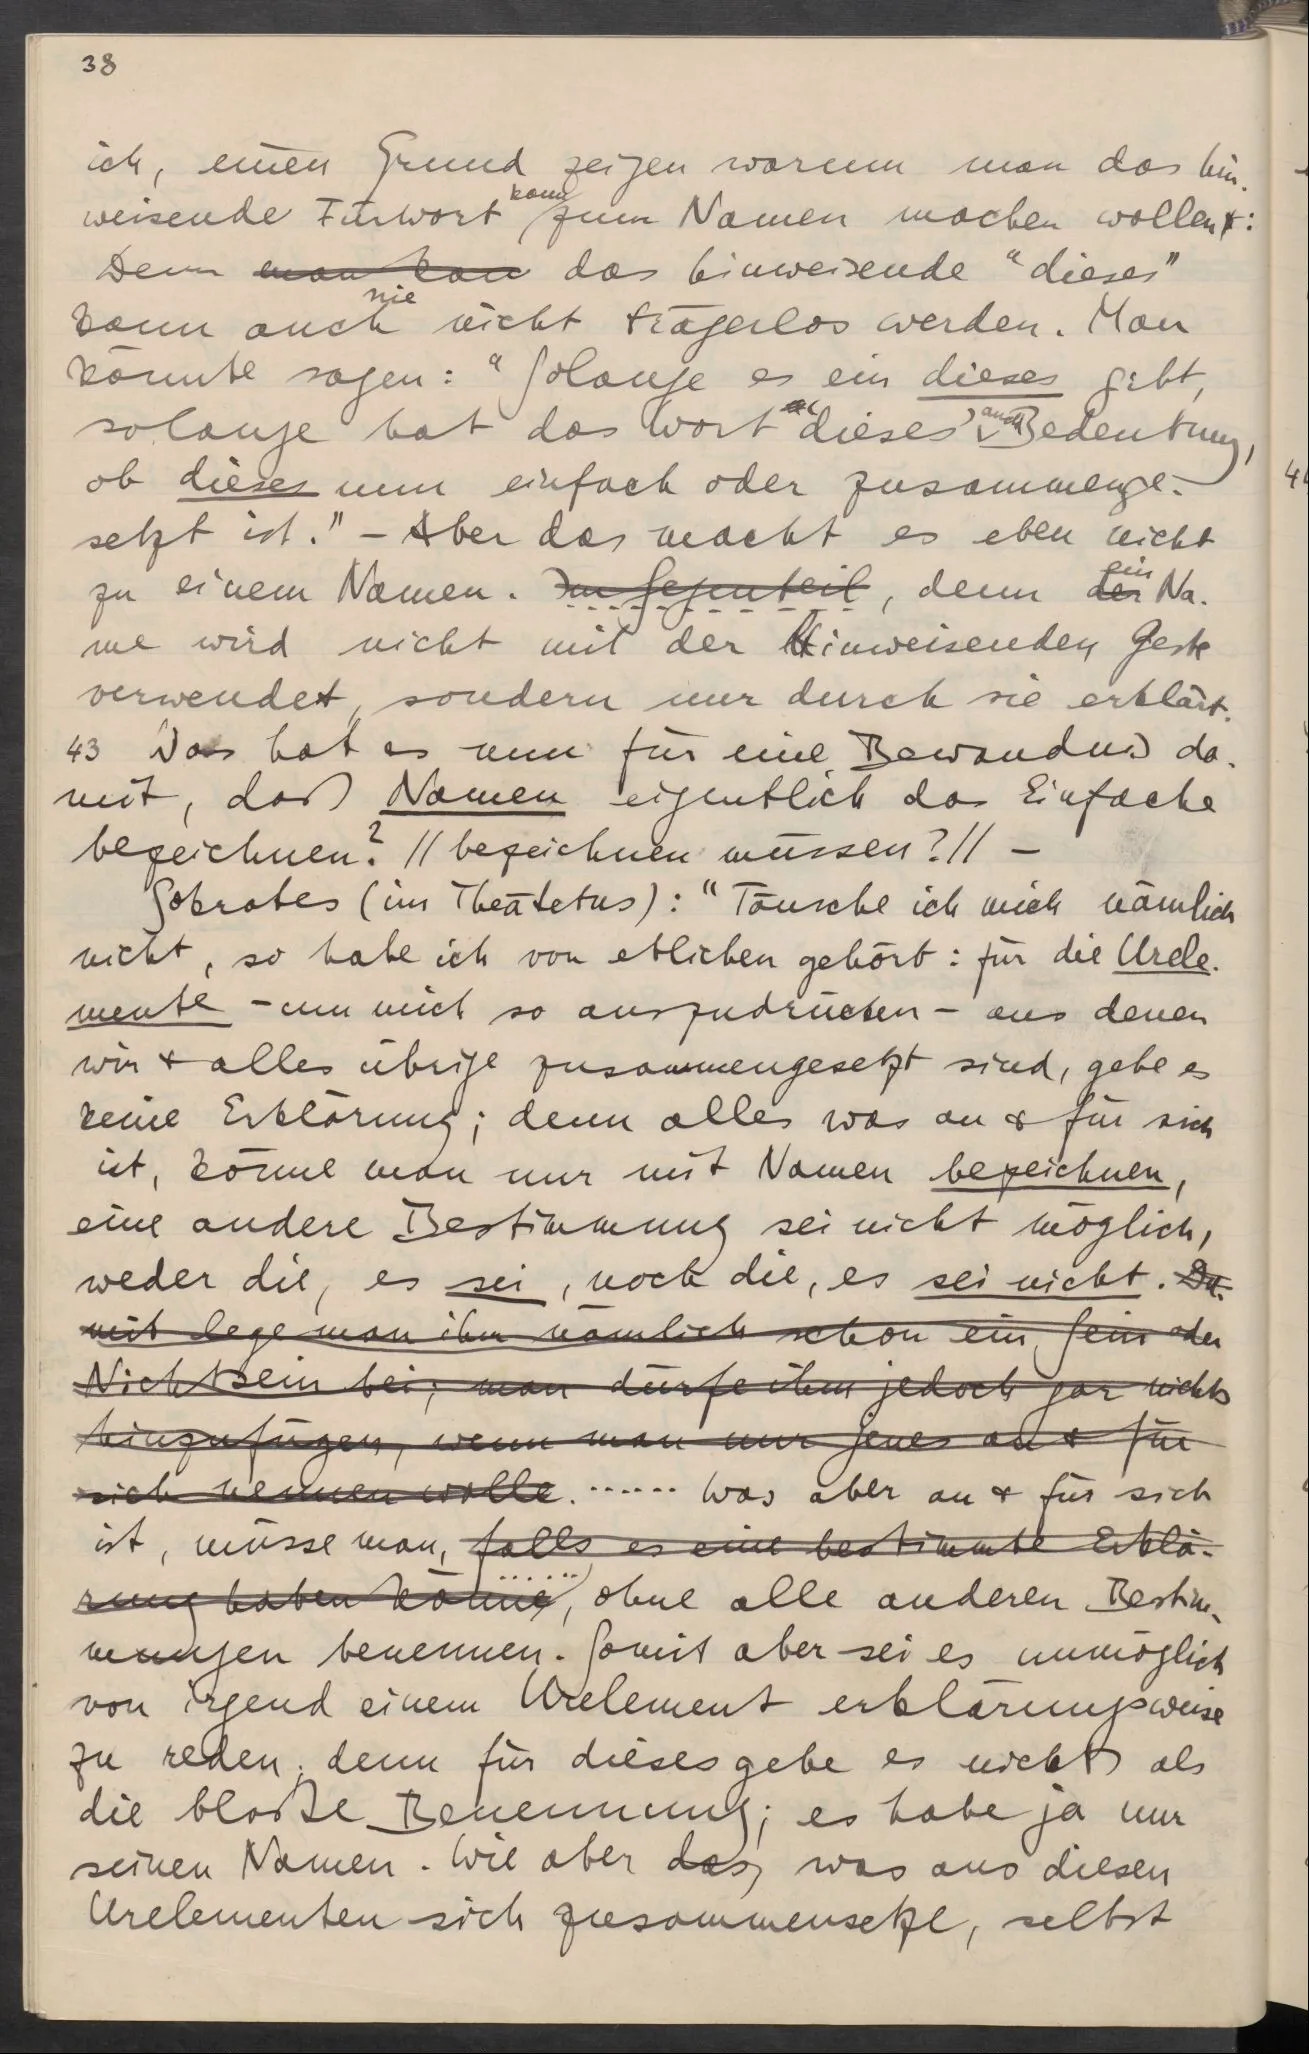 38
ich, einen Grund zeigen warum man das hin-
kann
weisende Fürwort zum Namen machen wollen:
Denn man kan das hinweisende "dieses"
nie
kann auch nicht trägerlos werden. Man
könnte sagen: "Solange es ein dieses gibt,
auch
solange hat das Wort 'dieses' Bedeutung,
ob dieses nun einfach oder zusammenge-
setzt ist." – Aber das macht es eben nicht
ein
zu einem Namen. Im Gegenteil, denn der Na-
me wird nicht mit der Hinweisenden Geste
verwendet, sondern nur durch sie erklärt.
43 Was hat es nun für eine Bewandnis da-
mit, daß Namen eigentlich das Einfache
bezeichnen? // bezeichnen müssen? // –
Sokrates (im Theätetus): "Täusche ich mich nämlich
nicht, so habe ich von etlichen gehört: für die Urele-
mente – um mich so auszudrücken – aus denen
wir & alles übrige zusammengesetzt sind, gebe es
keine Erklärung; denn alles was an & für sich
ist, könne man nur mit Namen bezeichnen,
eine andere Bestimmung sei nicht möglich,
weder die, es sei, noch die, es sei nicht. Da-
mit lege man ihm nämlich schon ein Sein oder
Nichtsein bei; man dürfe ihm jedoch gar nichts
hinzufügen, wenn man nur jenes an & für
sich nennen wolle. ...... Was aber an & für sich
ist, müsse man, falls es eine bestimmte Erklä-
rung haben könne, ...... ohne alle anderen Bestim-
mungen benennen. Somit aber sei es unmöglich
von irgend einem Urelement erklärungsweise
zu reden; denn für dieses gebe es nichts als
die bloße Benennung; es habe ja nur
seinen Namen. Wie aber das, was aus diesen
Urelementen sich zusammensetze, selbst